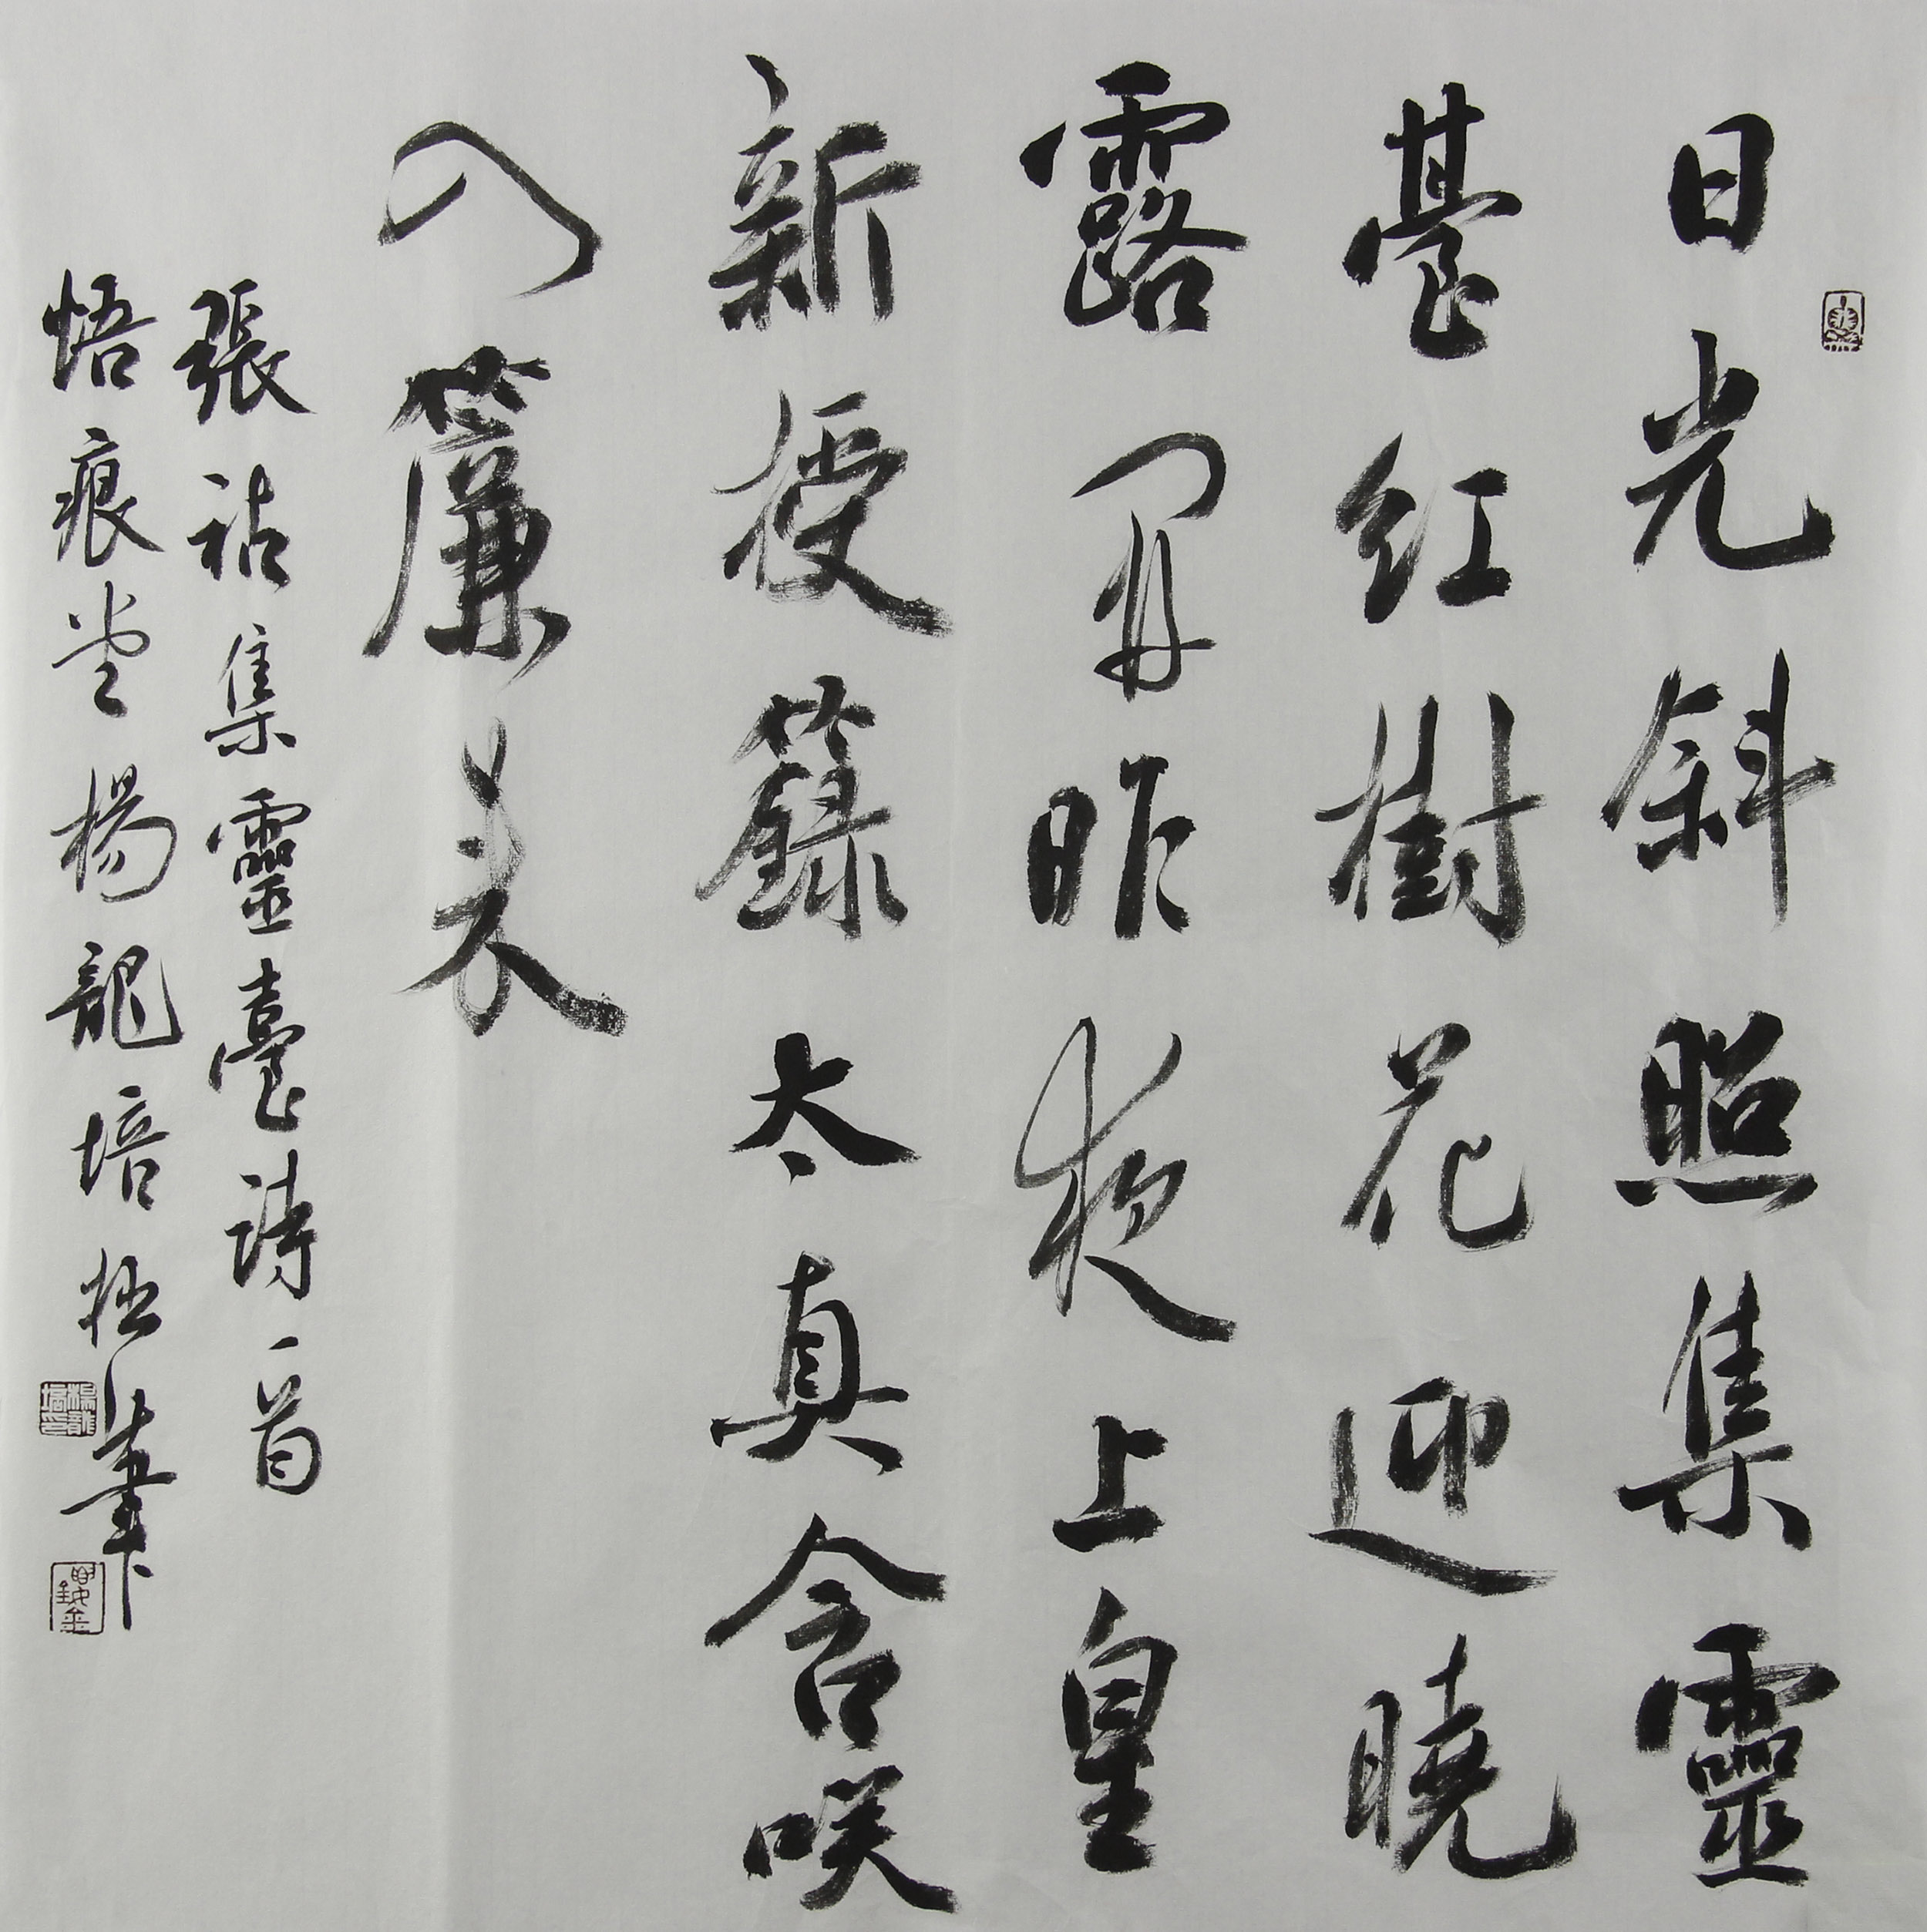 日光斜照集靈
臺紅樹花迎曉
露開昨夜上皇
新授籙太真含咲
入簾来
張祜集靈臺詩一首
悟痕堂楊龍培拯筆